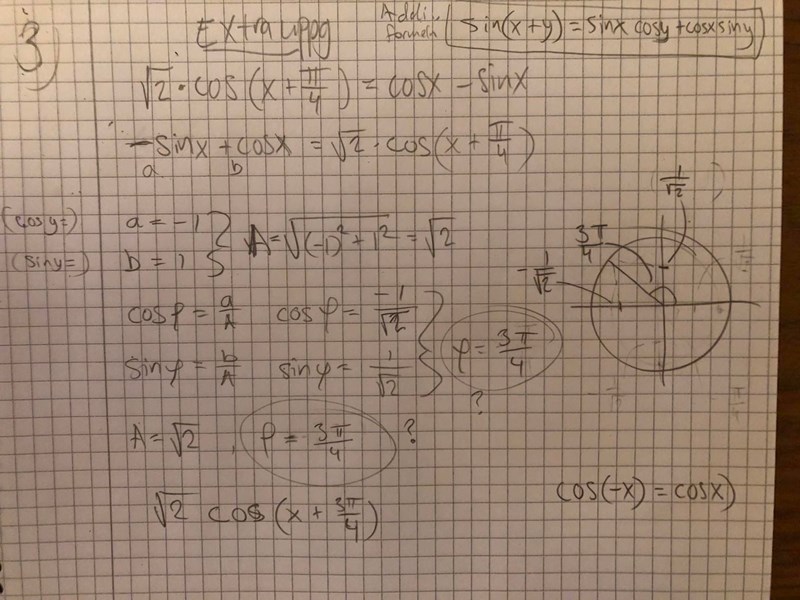 3)
Extra uppg
Addi. formeln
sin(x+y) = sinx cosy + cosx siny
√2 · cos(x + π/4) = cosx - sinx
-sinx + cosx = √2 · cos(x + π/4)
a b
(cosy=) a = -1
(siny=) b = 1
A = √((-1)² + 1²) = √2
1/√2
3π/4
-1/√2
cosφ = a/A cosφ = -1/√2
sinφ = b/A sinφ = 1/√2
φ = 3π/4
?
A = √2, φ = 3π/4 ?
cos(-x) = cosx)
√2 cos(x + 3π/4)